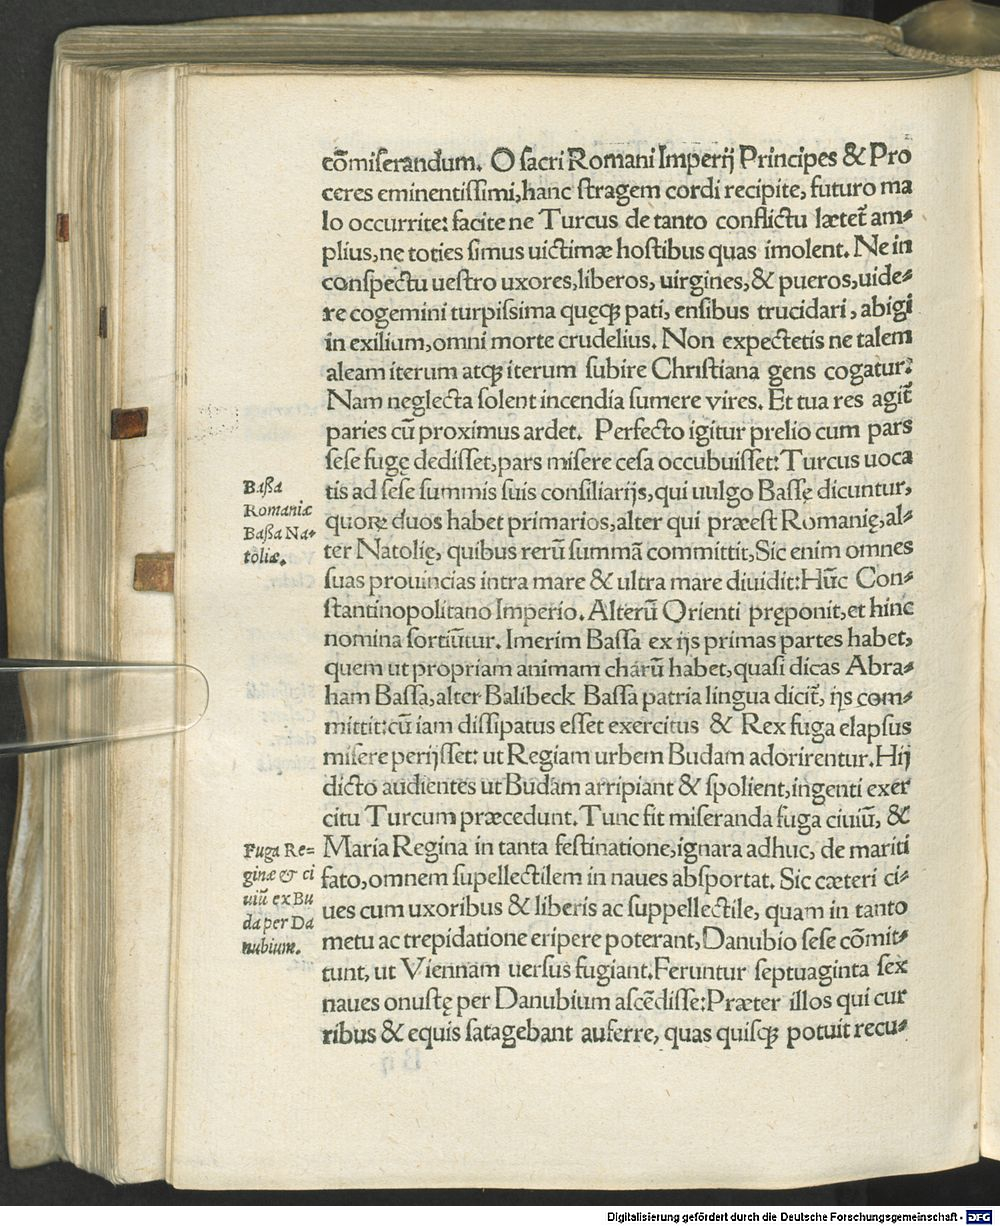 cōmiſerandum. O ſacri Romani Imperij Principes & Pro
ceres eminentiſſimi, hanc ſtragem cordi recipite, futuro ma
lo occurrite: facite ne Turcus de tanto conflictu lætet̃ am⸗
plius, ne toties ſimus uictimæ hoſtibus quas imolent. Ne in
conſpectu ueſtro uxores, liberos, uirgines, & pueros, uide⸗
re cogemini turpiſſima quęcꝗ pati, enſibus trucidari, abigi
in exilium, omni morte crudelius. Non expectetis ne talem
aleam iterum atcꝗ iterum ſubire Chriſtiana gens cogatur?
Nam neglecta ſolent incendia ſumere vires. Et tua res agit̃
paries cū proximus ardet. Perfecto igitur prelio cum pars
ſeſe fugę dediſſet, pars miſere ceſa occubuiſſet: Turcus uoca
Baßa
Romaniæ
Baßa Na⸗
toliæ.
tis ad ſeſe ſummis ſuis conſiliarijs, qui uulgo Baſſę dicuntur,
quoꝝ duos habet primarios, alter qui præeſt Romanię, al⸗
ter Natolię, quibus rerū ſummā committit, Sic enim omnes
ſuas prouincias intra mare & ultra mare diuidit: Hūc Con⸗
ſtantinopolitano Imperio. Alterū Orienti pręponit, et hinc
nomina ſortiūtur. Imerim Baſſa ex ijs primas partes habet,
quem ut propriam animam charū habet, quaſi dicas Abra⸗
ham Baſſa, alter Balibeck Baſſa patria lingua dicit̃, ijs com⸗
mittit: cū iam diſſipatus eſſet exercitus & Rex fuga elapſus
miſere perijſſet: ut Regiam urbem Budam adorirentur. Hij
dicto audientes ut Budam arripiant & ſpolient, ingenti exer
citu Turcum præcedunt. Tunc fit miſeranda fuga ciuiū, &
Fuga Re=
ginæ & ci
uiū ex Bu
da per Da
nubium.
Maria Regina in tanta feſtinatione, ignara adhuc, de mariti
fato, omnem ſupellectilem in naues abſportat. Sic cæteri ci⸗
ues cum uxoribus & liberis ac ſuppellectile, quam in tanto
metu ac trepidatione eripere poterant, Danubio ſeſe cōmit⸗
tunt, ut Viennam uerſus fugiant. Feruntur ſeptuaginta ſex
naues onuſtę per Danubium aſcēdiſſe: Præter illos qui cur
ribus & equis ſatagebant auferre, quas quiſcꝗ potuit recu⸗
Digitalisierung gefördert durch die Deutsche Forschungsgemeinschaft - DFG